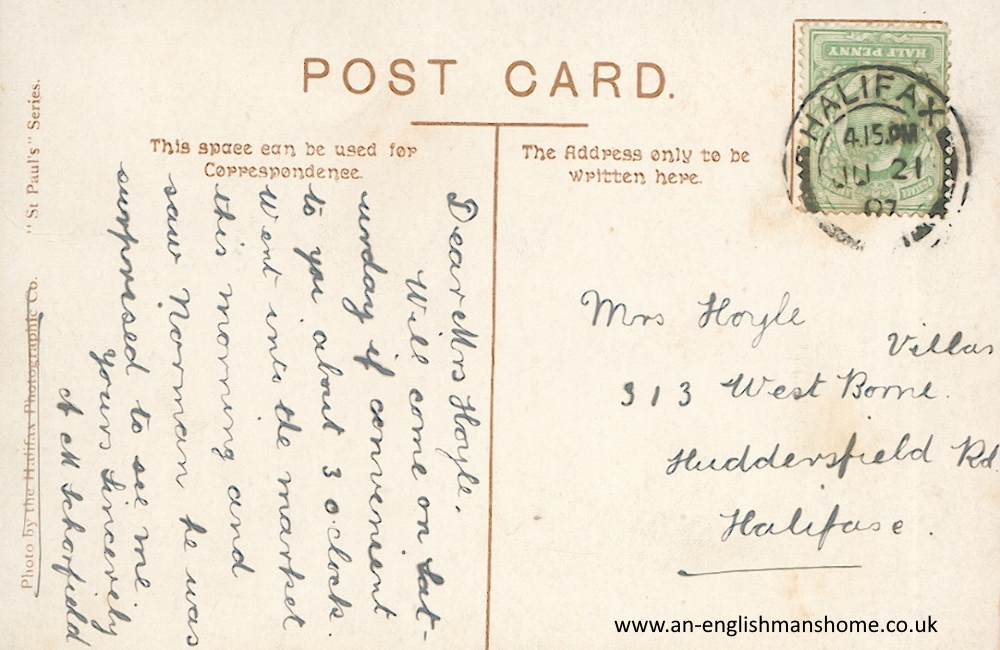 POST CARD.
This space can be used for
Correspondence.
The Address only to be
written here.
HALF PENNY
HALIFAX
4.15.PM
JU 21
07
POSTAGE
"St Paul's" Series.
Photo by the Halifax Photographic Co.
Dear Mrs Hoyle.
Will come on Sat-
urday if convenient
to you about 3 oclock.
Went into the market
this morning and
saw Norman he was
surprised to see me.
yours Sincerely
A M Schofield
Mrs Hoyle
Villas
313 West Borne.
Huddersfield Rd.
Halifase.
www.an-englishmanshome.co.uk